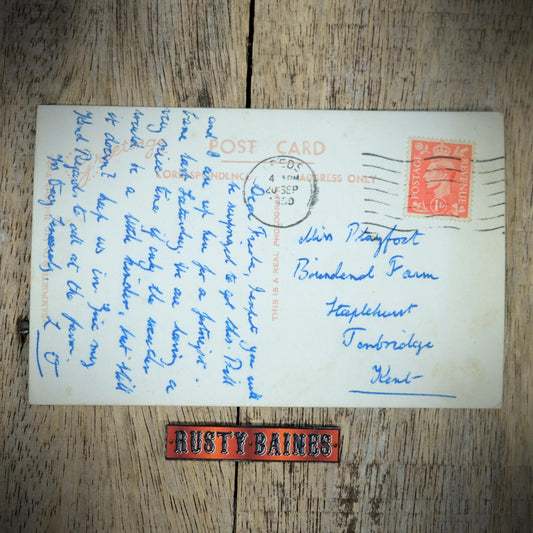 Greetings
POST CARD
CORRESPONDENCE
ADDRESS ONLY
LEEDS
4 PM
20 SEP
1950
POSTAGE
REVENUE
1D
THIS IS A REAL PHOTOGRAPH
Dear Freda, I expect you will
be surprised to get this. Bill
and I are up here for a fortnight.
Came last Saturday. We are having a
very nice time if only the weather
would be a little kinder, but still
it doesn't help us in
Kind Regards to all at the farm.
Yours Sincerely
Miss Playfoot
Boundend Farm
Staplehurst
Tonbridge
Kent
RUSTY·BAINES